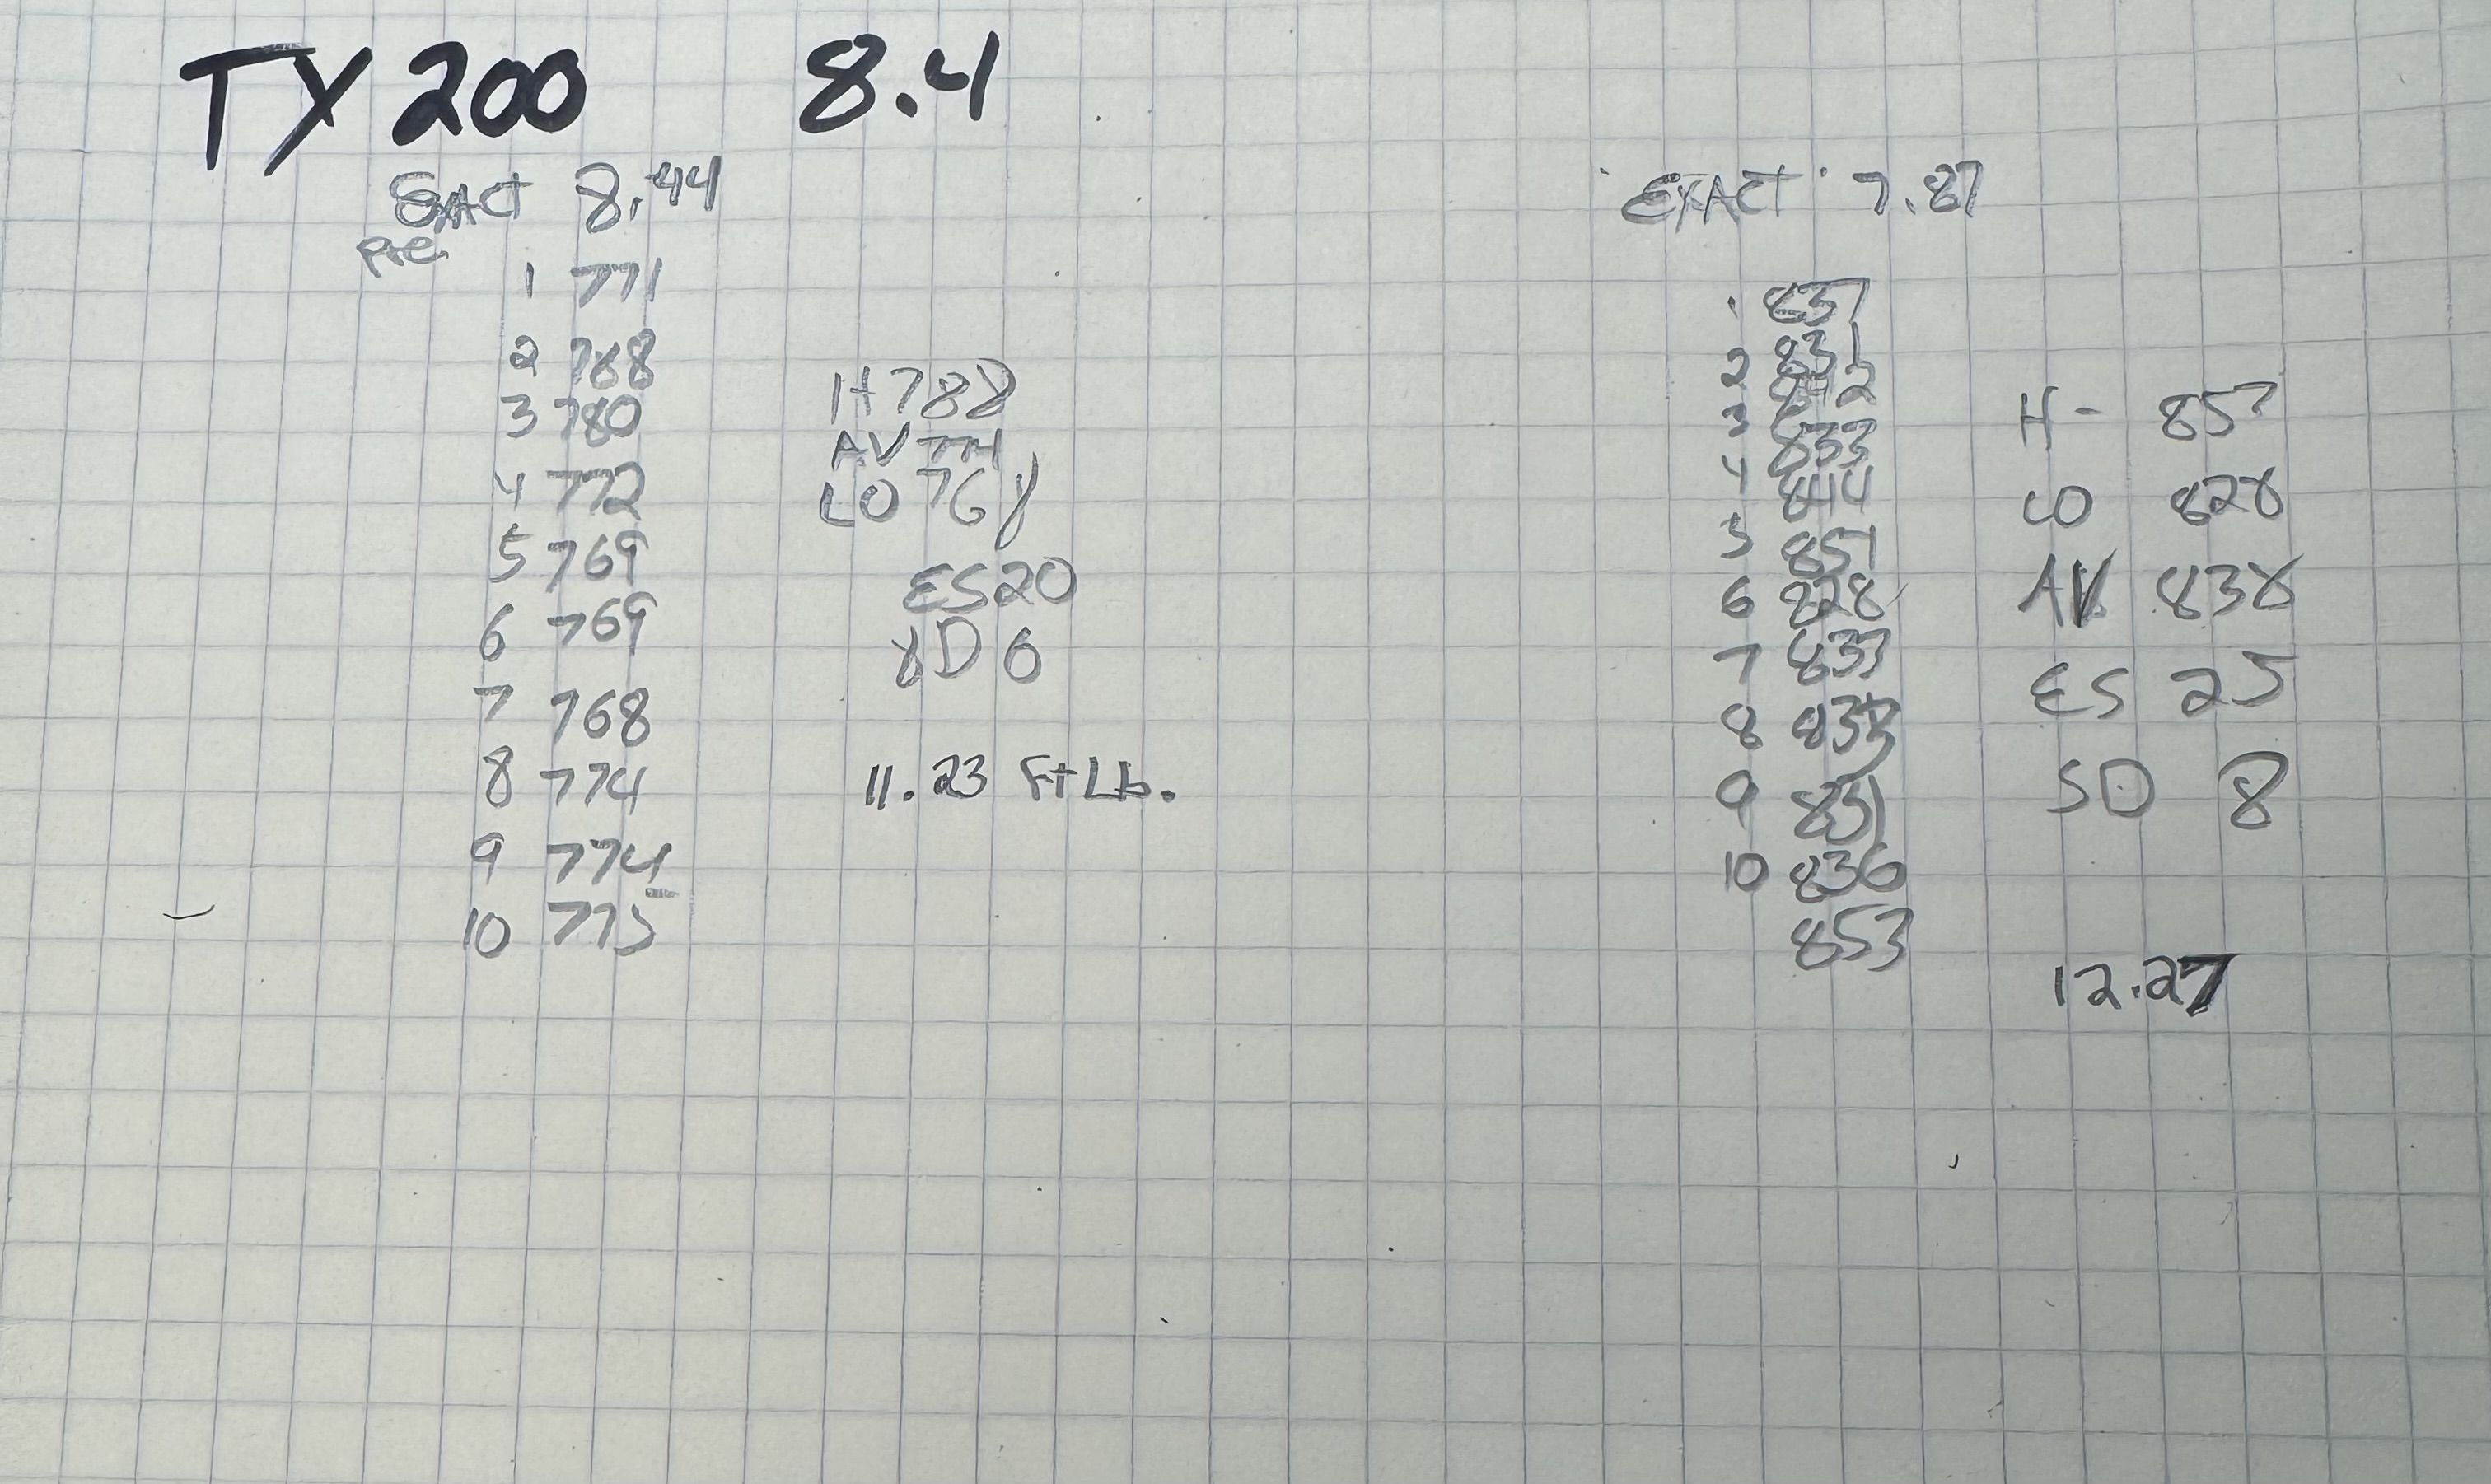 TX 200 8.4
EXACT 8.44
Pre
1 771
2 768
3 780
4 772
5 769
6 769
7 768
8 774
9 774
10 775
H 788
AV 774
LO 768
ES 20
SD 6
11.23 Ft Lb.
EXACT 7.87
1 837
2 831
842
3 833
4 844
5 851
6 828
7 833
8
9 831
10 836
853
H - 853
LO 828
AV 838
ES 25
SD 8
12.27